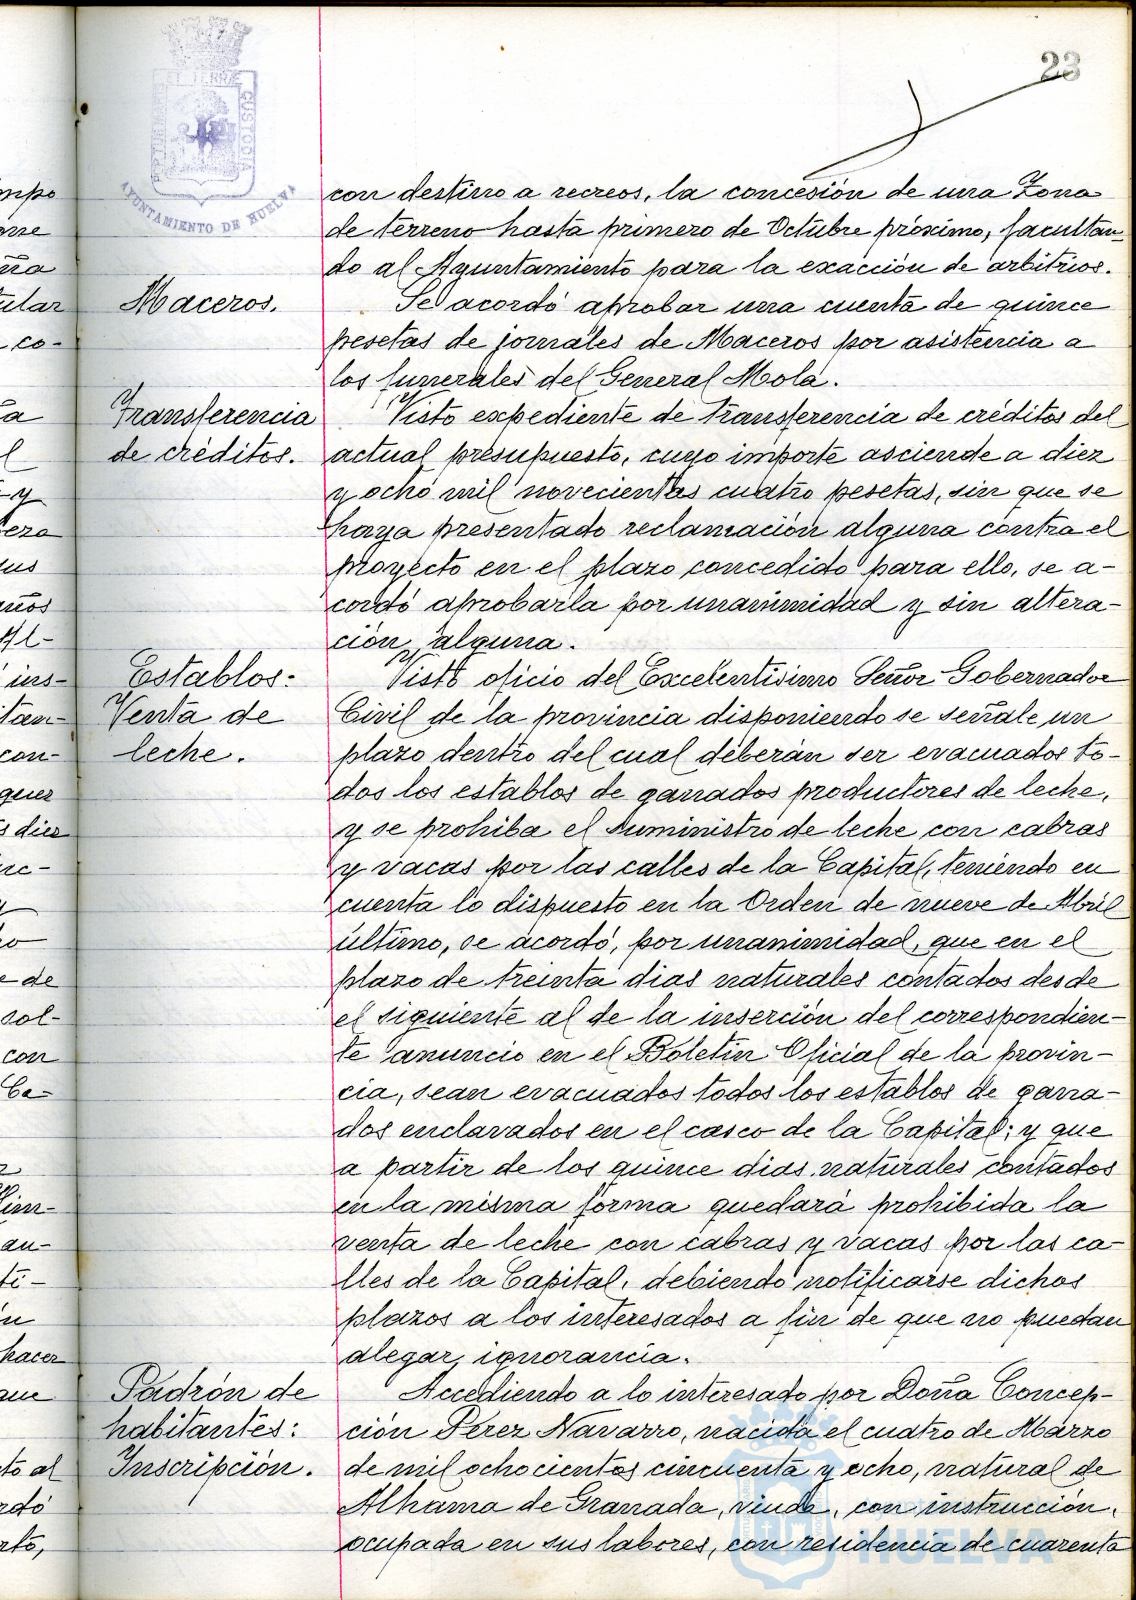 23
PORTUS MARIS ET TERRAE CUSTODIA
AYUNTAMIENTO DE HUELVA
con destino a recreos, la concesión de una Zona
de terreno hasta primero de Octubre próximo, facultan-
do al Ayuntamiento para la exacción de arbitrios.
Maceros.
Se acordó aprobar una cuenta de quince
pesetas de jornales de Maceros por asistencia a
los funerales del General Mola.
Transferencia
de créditos.
Visto expediente de transferencia de créditos del
actual presupuesto, cuyo importe asciende a diez
y ocho mil novecientas cuatro pesetas, sin que se
haya presentado reclamación alguna contra el
proyecto en el plazo concedido para ello, se a-
cordó aprobarla por unanimidad y sin altera-
ción alguna.
Establos:
Venta de
leche.
Visto oficio del Excelentísimo Señor Gobernador
Civil de la provincia disponiendo se señale un
plazo dentro del cual deberán ser evacuados to-
dos los establos de ganados productores de leche,
y se prohiba el suministro de leche con cabras
y vacas por las calles de la Capital, teniendo en
cuenta lo dispuesto en la Orden de nueve de Abril
último, se acordó, por unanimidad, que en el
plazo de treinta dias naturales contados desde
el siguiente al de la inserción del correspondien-
te anuncio en el Boletín Oficial de la provin-
cia, sean evacuados todos los establos de gana-
dos enclavados en el casco de la Capital; y que
a partir de los quince dias naturales contados
en la misma forma quedará prohibida la
venta de leche con cabras y vacas por las ca-
lles de la Capital, debiendo notificarse dichos
plazos a los interesados a fin de que no puedan
alegar ignorancia.
Padrón de
habitantes:
Inscripción.
Accediendo a lo interesado por Doña Concep-
ción Pérez Navarro, nacida el cuatro de Marzo
de mil ochocientos cincuenta y ocho, natural de
Alhama de Granada, viuda, con instrucción,
ocupada en sus labores, con residencia de cuarenta
HUELVA